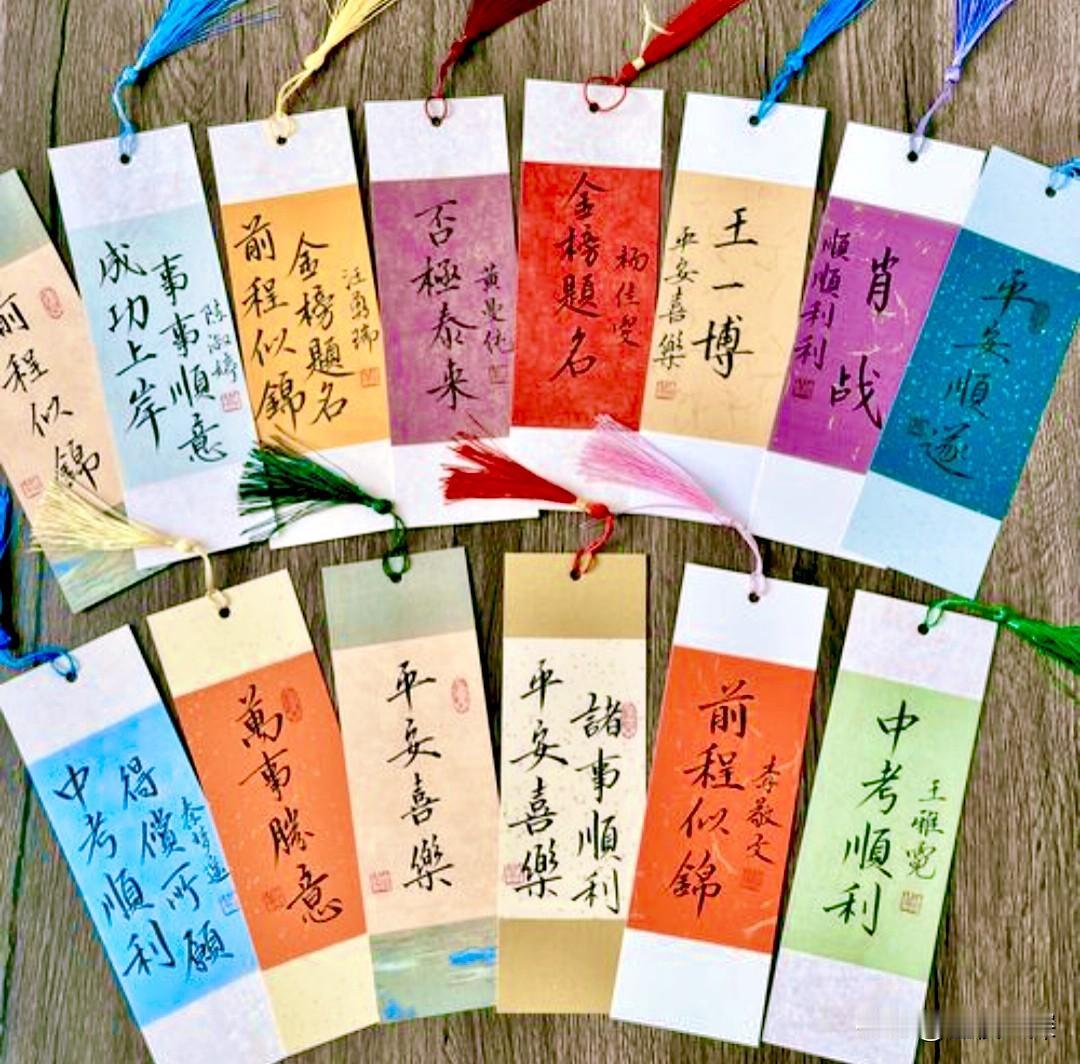 前程似錦
事事順意
成功上岸
金榜題名
前程似錦
否極泰来
金榜題名
王一博
平安喜樂
肖战
順順利利
平安順遂
得償所願
中考順利
萬事勝意
平安喜樂
諸事順利
平安喜樂
前程似錦
李敬文
中考順利